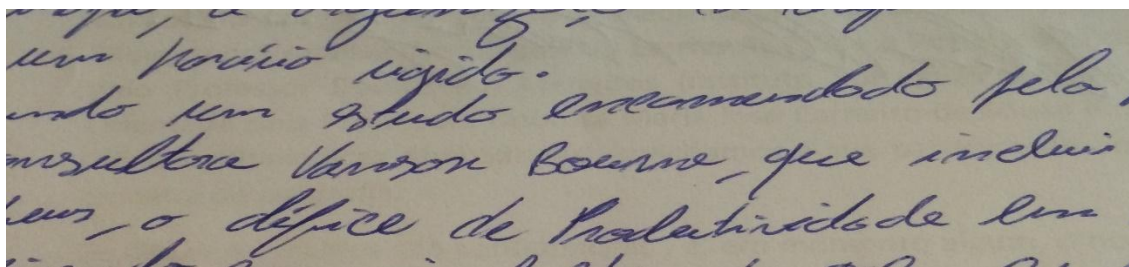 um horário rigido.
undo um estudo encomendado pela
onsultora Vanson Bourne, que incluis
eus, o défice de Produtividade em